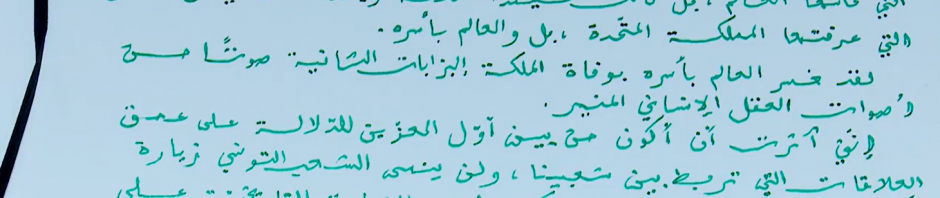 التي عرفتها المملكة المتّحدة ، بل والعالم بأسره .
لقد خسر العالم بأسره بوفاة الملكة إليزابات الثانية صوتًا من
أصوات العقل الإنساني المنير .
إنّي آثرت أن أكون من بين أوّل المعزّين للدّلالة على عمق
العلاقات التي تربط بين شعبينا ، ولن ينسى الشعب التونسي زيارة